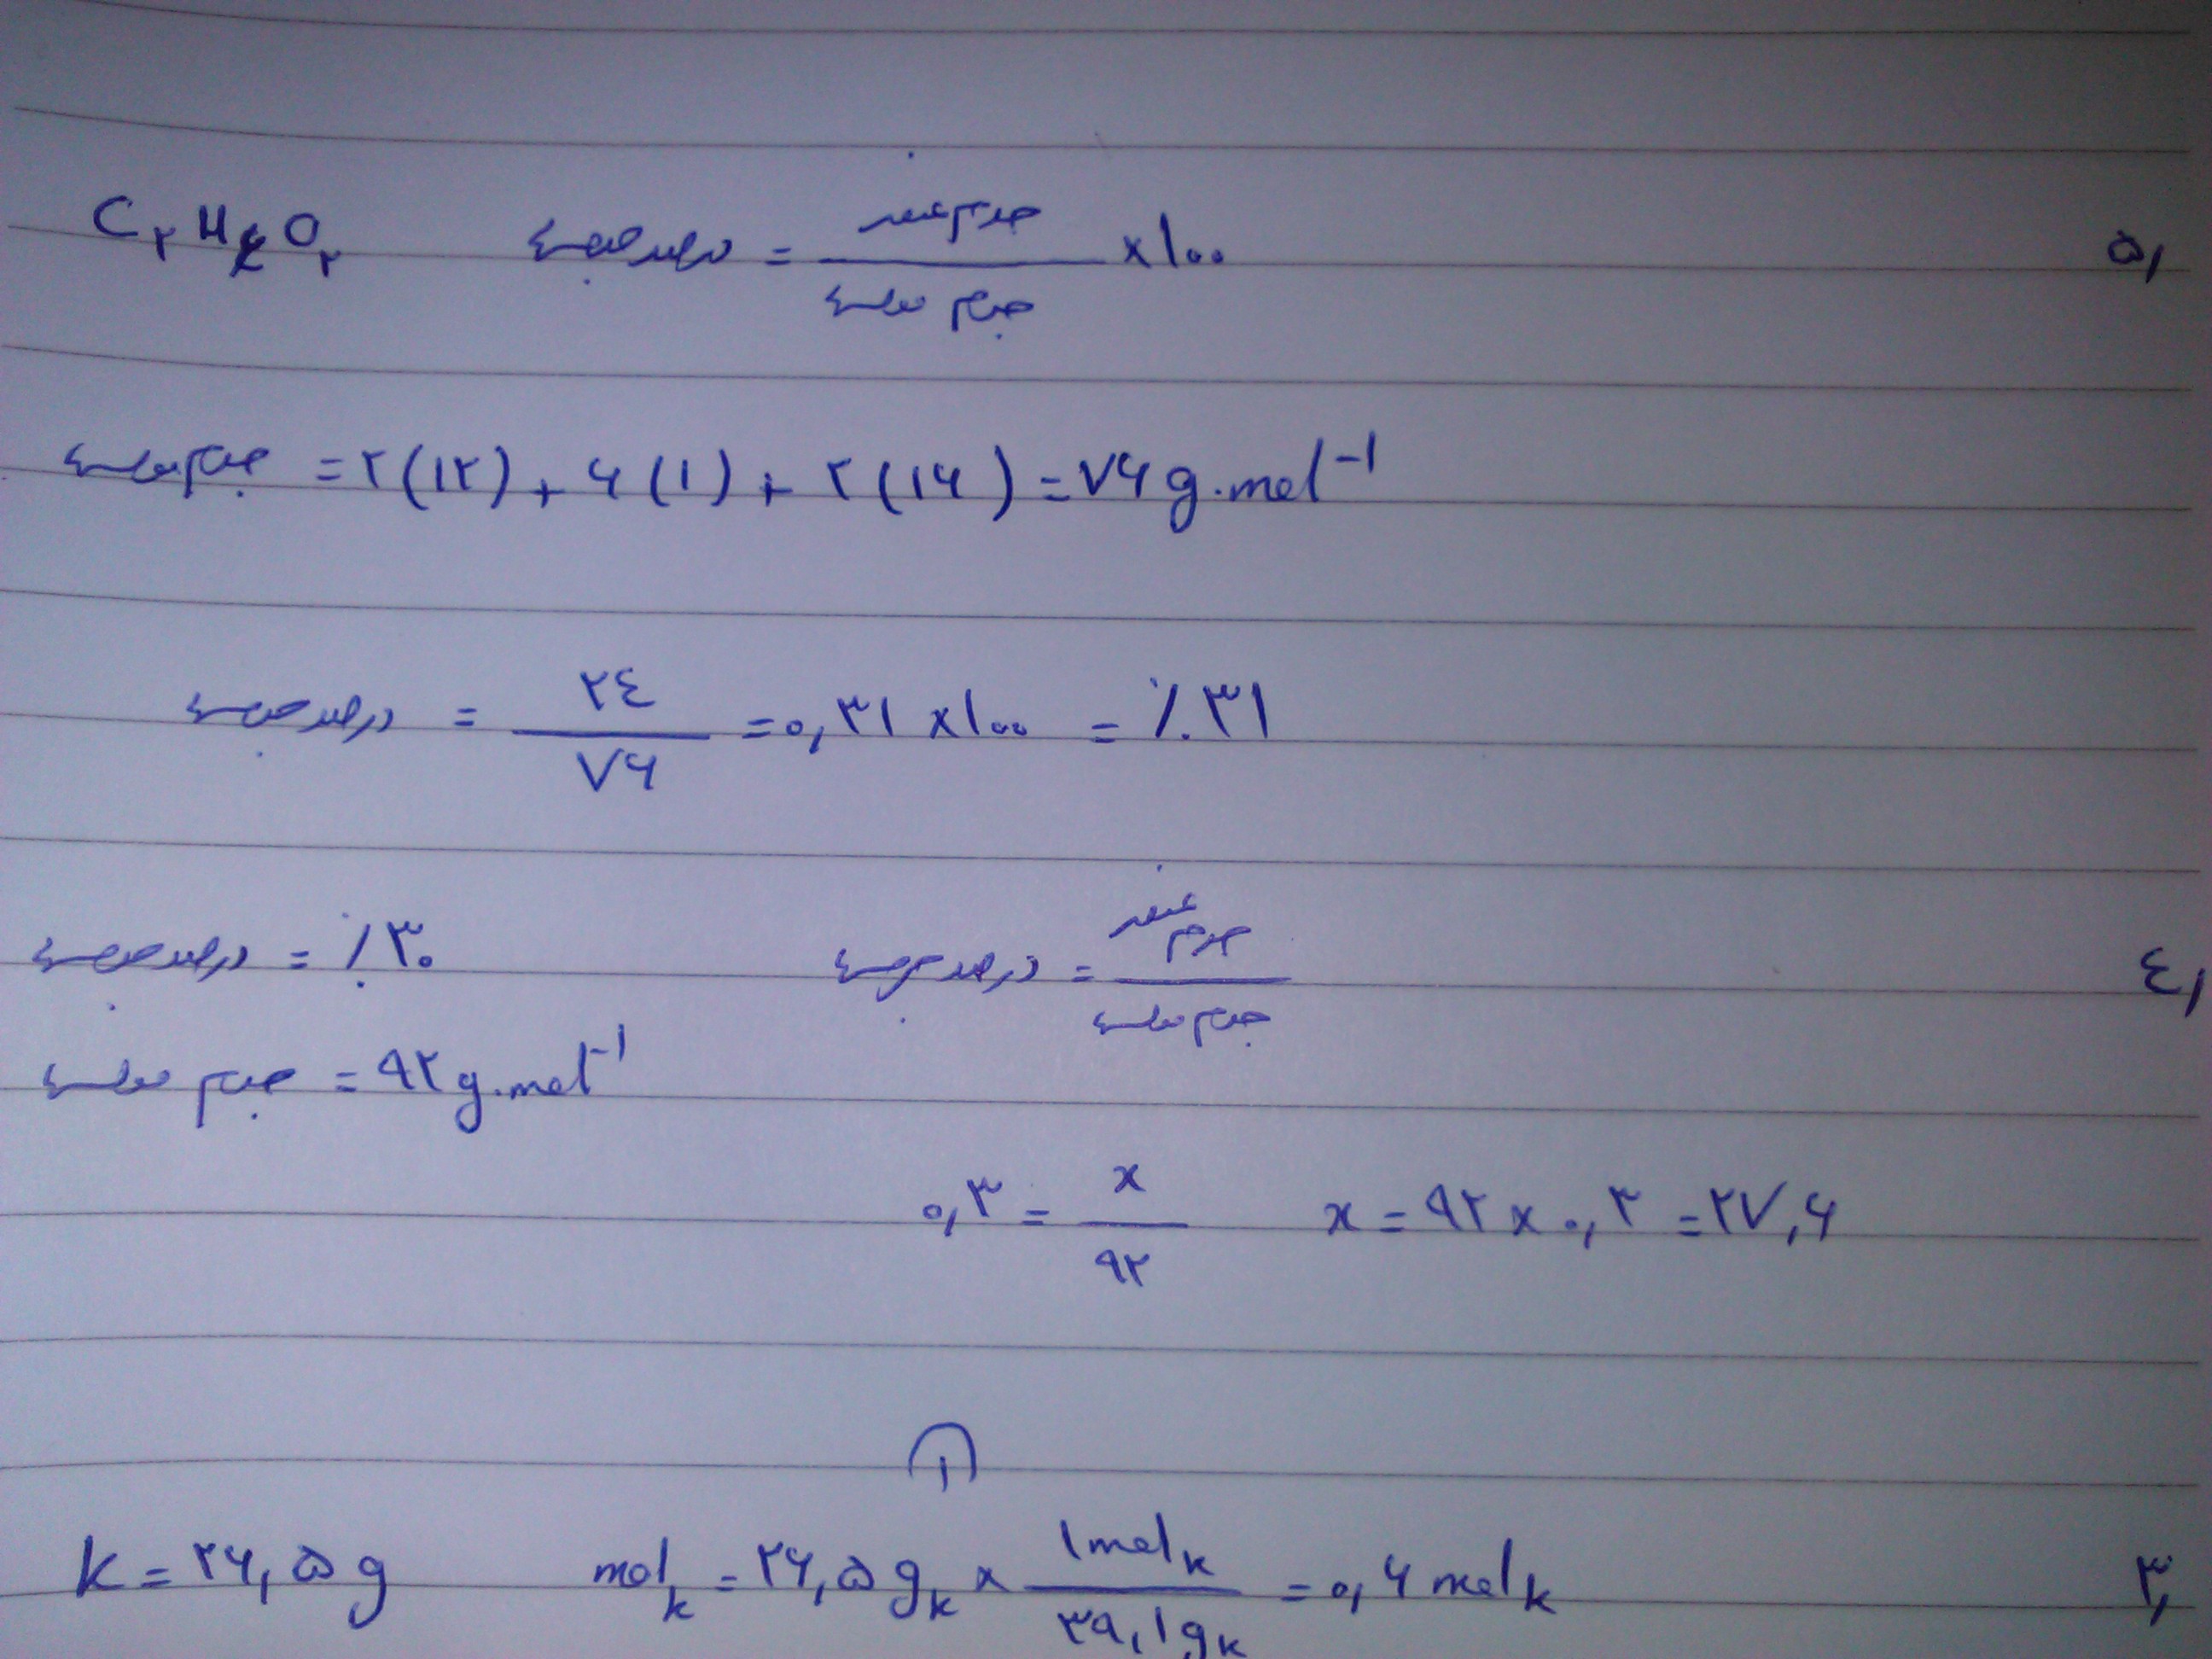 ۵, C۲H۶O۲ درصد جرمی = جرم عنصر / جرم مولی ×۱۰۰
جرم مولی = ۲(۱۲) + ۶(۱) + ۲(۱۶) = ۷۶ g.mol⁻¹
درصد جرمی = ۲٤ / ۷۶ = ۰,۳۱ ×۱۰۰ = ٪۳۱
٤, درصد جرمی = ٪۳۰ درصد جرمی = جرم عنصر / جرم مولی
جرم مولی = ۹۲ g.mol⁻¹
۰,۳ = x / ۹۲ x = ۹۲ × ۰,۳ = ۲۷,۶
۱
۳, k = ۲۶,۵ g mol k = ۲۶,۵ g k × ۱ mol k / ۳۹,۱ g k = ۰,۶ mol k